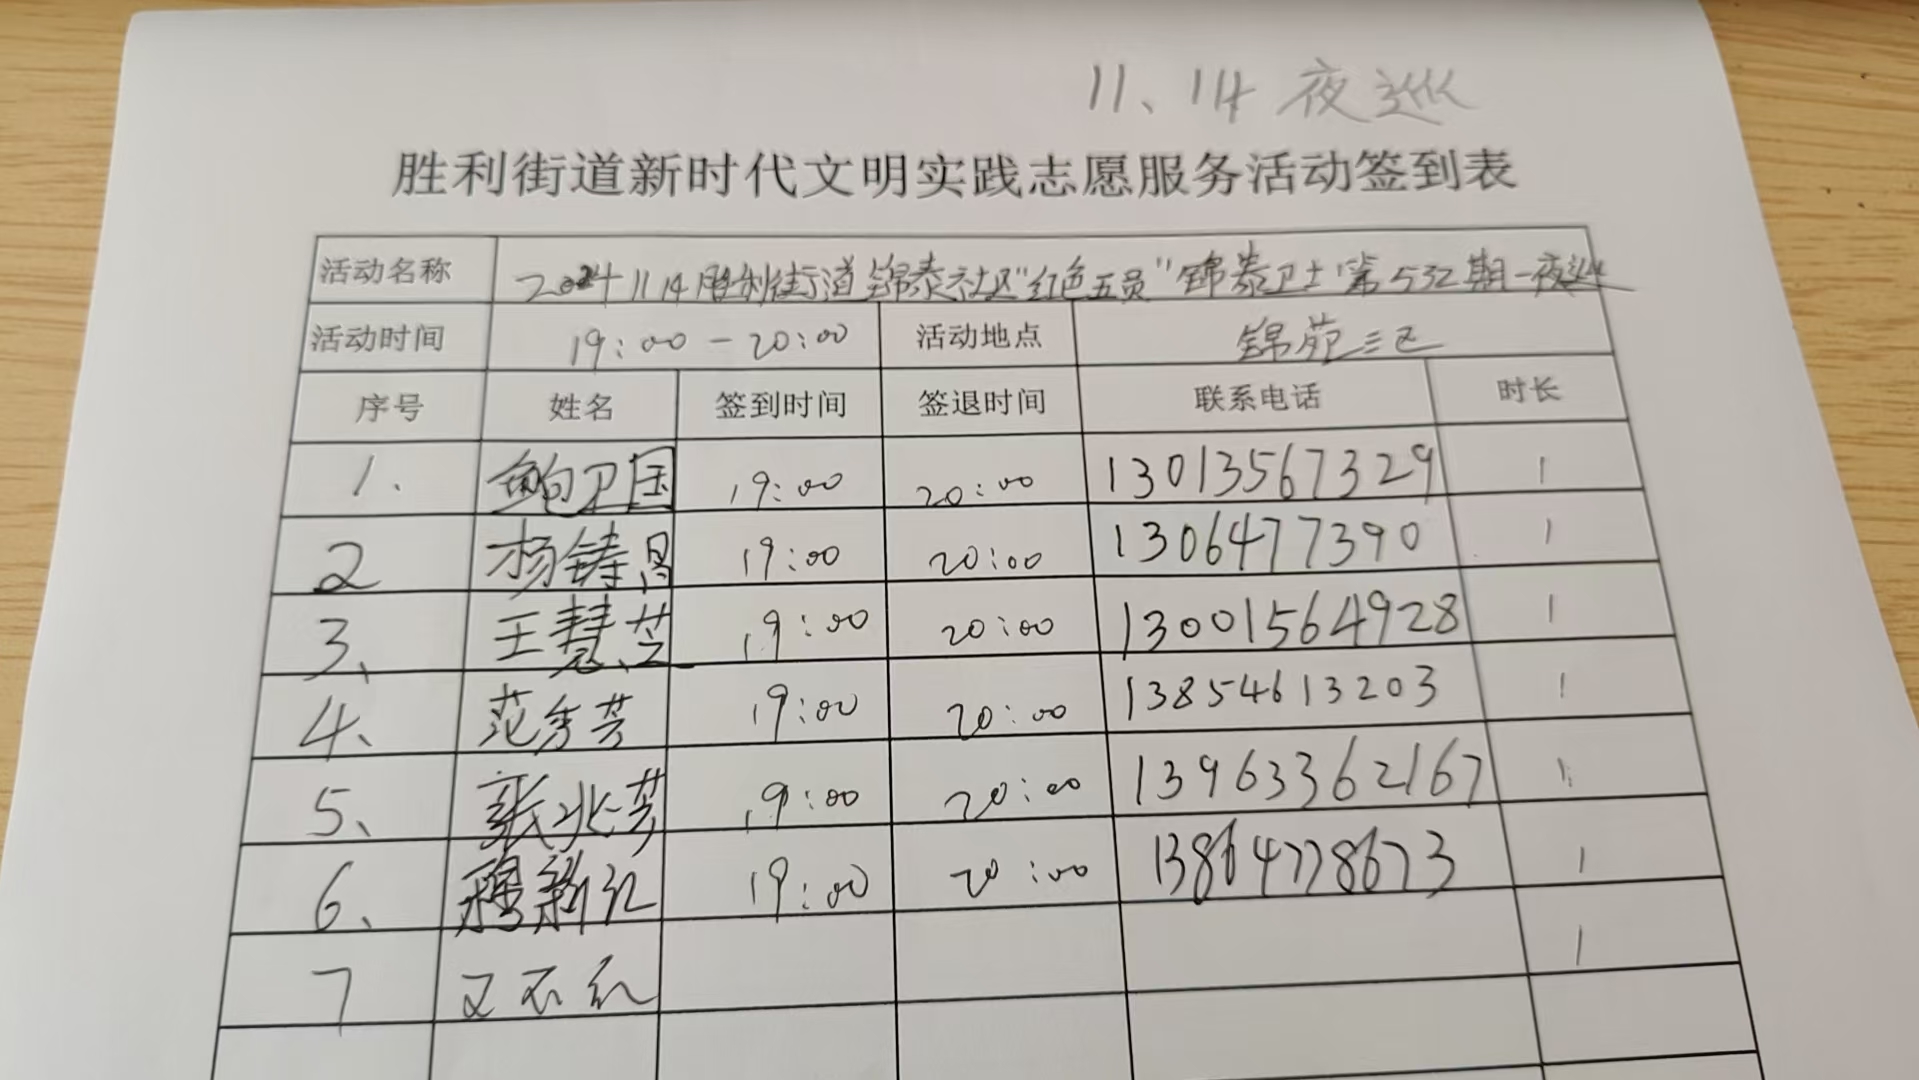 11、14 夜巡
胜利街道新时代文明实践志愿服务活动签到表
活动名称 2024 11 14 胜利街道锦泰社区“红色五员”锦泰卫士第532期—夜巡
活动时间 19:00-20:00 活动地点 锦苑三区
序号 姓名 签到时间 签退时间 联系电话 时长
1. 鲍卫国 19:00 20:00 13013567329 1
2 杨铸昌 19:00 20:00 1306477390 1
3、 王慧芝 19:00 20:00 13001564928 1
4、 范秀芳 19:00 20:00 13854613203 1
5、 张兆芳 19:00 20:00 13963362167 1
6、 穆新红 19:00 20:00 13864778673 1
7 1